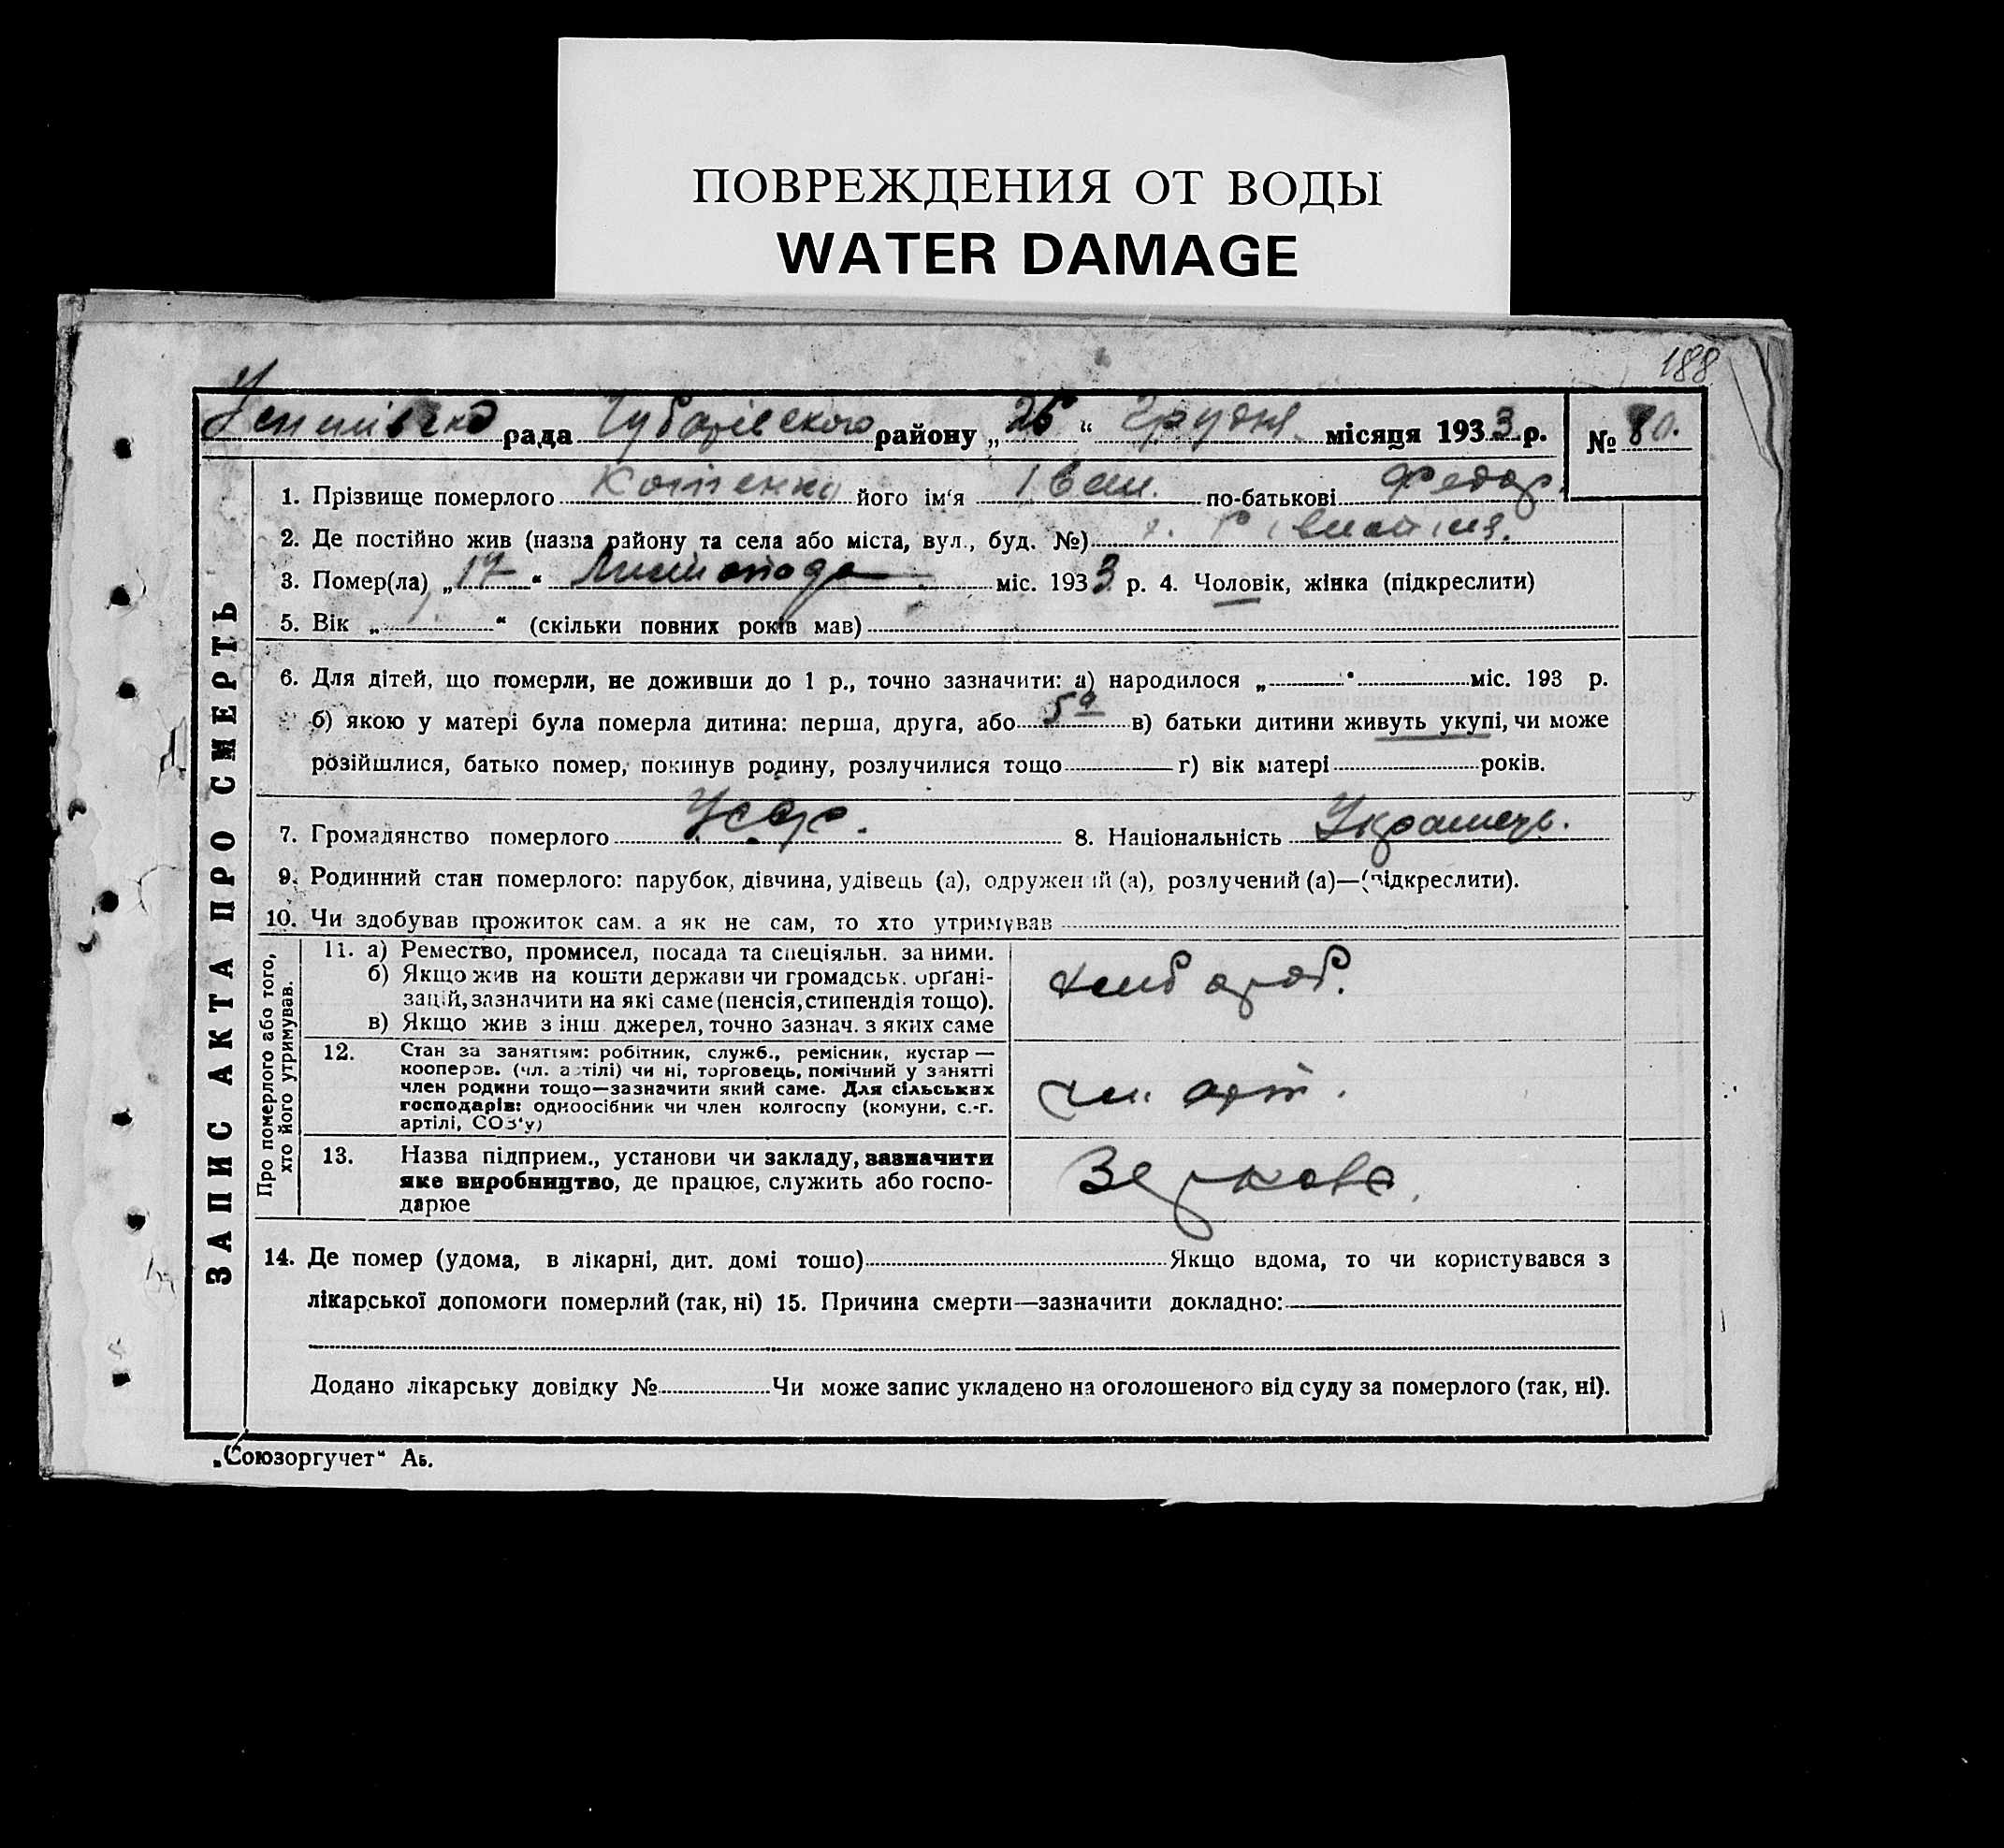 ПОВРЕЖДЕНИЯ ОТ ВОДЫ
WATER DAMAGE
188
рада Чубарівского району „26“ Грудня місяця 1933 р. № 80.
ЗАПИС АКТА ПРО СМЕРТЬ
1. Прізвище померлого Котенко його ім'я Іван. по-батькові Федор.
2. Де постійно жив (назва району та села або міста, вул., буд. №)
3. Помер(ла) „17“ Листопода міс. 1933 р. 4. Чоловік, жінка (підкреслити)
5. Вік „ “ (скільки повних років мав)
6. Для дітей, що померли, не доживши до 1 р., точно зазначити: а) народилося „ “ міс. 193 р.
б) якою у матері була померла дитина: перша, друга, або 5а в) батьки дитини живуть укупі, чи може
розійшлися, батько помер, покинув родину, розлучилися тощо г) вік матері років.
7. Громадянство померлого УССР. 8. Національність Украинець.
9. Родинний стан померлого: парубок, дівчина, удівець (а), одружений (а), розлучений (а)—(підкреслити).
10. Чи здобував прожиток сам. а як не сам, то хто утримував
Про померлого або того, хто його утримував.
11. а) Ремество, промисел, посада та спеціяльн. за ними.
б) Якщо жив на кошти держави чи громадськ. орґані-
зацій, зазначити на які саме (пенсія, стипендія тощо).
в) Якщо жив з інш. джерел, точно зазнач. з яких саме
хліб ороб.
12. Стан за заняттям: робітник, служб., ремісник, кустар —
кооперов. (чл. артілі) чи ні, торговець, помічний у занятті
член родини тощо—зазначити який саме. Для сільських
господарів: одноосібник чи член колгоспу (комуни, с.-г.
артілі, СОЗ'у)
чл. арт.
13. Назва підприєм., установи чи закладу, зазначити
яке виробництво, де працює, служить або госпо-
дарює
Зернове.
14. Де помер (удома, в лікарні, дит. домі тошо) Якщо вдома, то чи користувався з
лікарської допомоги померлий (так, ні) 15. Причина смерти—зазначити докладно:
Додано лікарську довідку № Чи може запис укладено на оголошеного від суду за померлого (так, ні).
„Союзоргучет“ Аь.